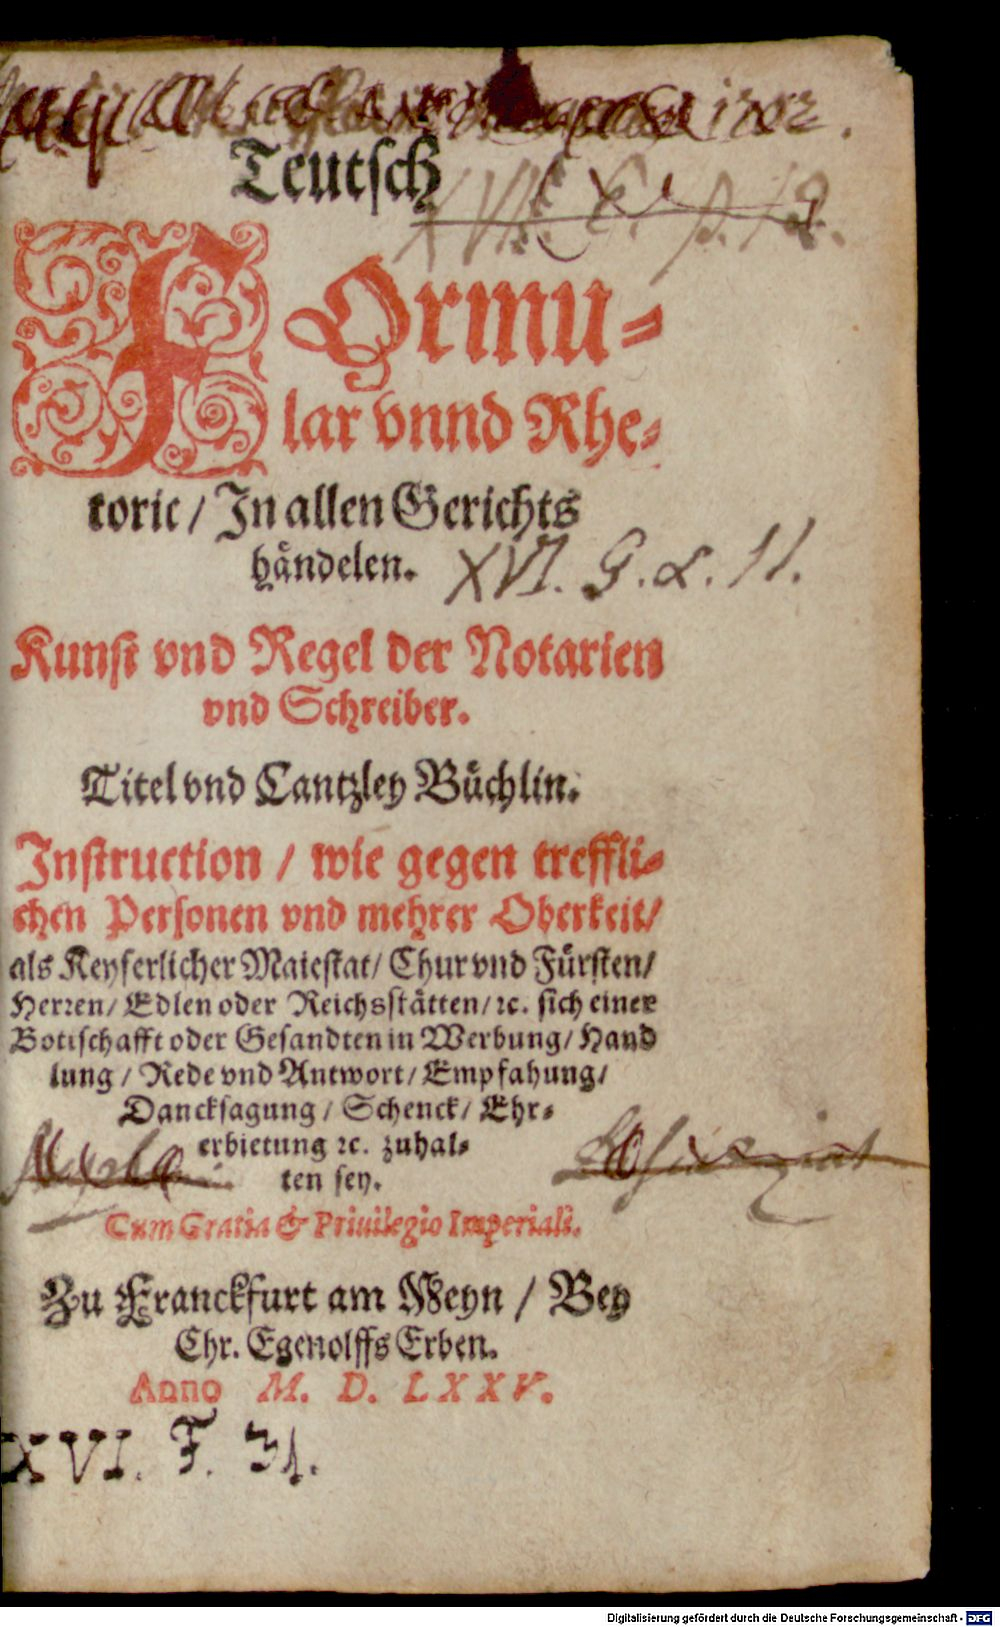 1702.
Teutsch
XVI. E. p. 18.
FOrmu-
lar vnnd Rhe-
toric / In allen Gerichts
händelen.
XVI. G. L. 11.
Kunst vnd Regel der Notarien
vnd Schreiber.
Titel vnd Cantzley Büchlin.
Instruction / wie gegen treffli-
chen Personen vnd mehrer Oberkeit/
als Keyserlicher Maiestat/ Chur vnd Fürsten/
Herren/ Edlen oder Reichsstätten/ ꝛc. sich einer
Bottschafft oder Gesandten in Werbung/ Hand
lung / Rede vnd Antwort/ Empfahung/
Dancksagung / Schenck/ Ehr-
erbietung ꝛc. zuhal-
ten sey.
Cum Gratia & Priuilegio Imperiali.
Zu Franckfurt am Meyn / Bey
Chr. Egenolffs Erben.
Anno M. D. LXXV.
XVI. F. 31.
Digitalisierung gefördert durch die Deutsche Forschungsgemeinschaft - DFG